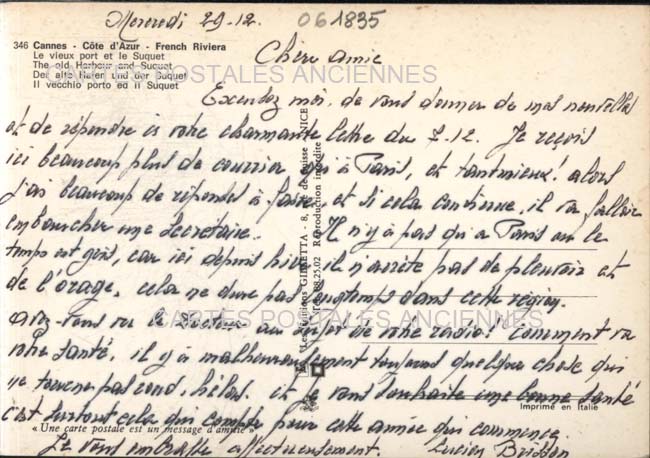 Mercredi 29-12.
061835
346 Cannes - Côte d'Azur - French Riviera
Le vieux port et le Suquet
The old Harbour and Suquet
Der alte Hafen und der Suquet
Il vecchio porto ed il Suquet
CARTES POSTALES ANCIENNES
Chère amie
Excusez moi, de vous donner de mes nouvelles
et de répondre à votre charmante lettre du 7-12. Je reçois
ici beaucoup plus de courrier, qu'à Paris, et tant mieux! alors
j'ai beaucoup de réponses à faire, et si cela continue, il va falloir
embaucher une secrétaire. Il n'y a pas qu'à Paris ou le
temps est gris, car ici depuis hier il n'arrête pas de pleuvoir et
de l'orage, cela ne dure pas longtemps dans cette région.
avez-vous vu le Docteur au sujet de votre radio! comment va
votre santé, il y a malheureusement toujours quelque chose qui
ne tourne pas rond, hélas. et je vous souhaite une bonne santé
c'est surtout cela qui compte pour cette année qui commence.
Je vous embrasse affectueusement. Lucien
CARTES POSTALES ANCIENNES
Les éditions GILLETTA - 8, NICE
Reproduction interdite
Imprimé en Italie
« Une carte postale est un message d'amitié »